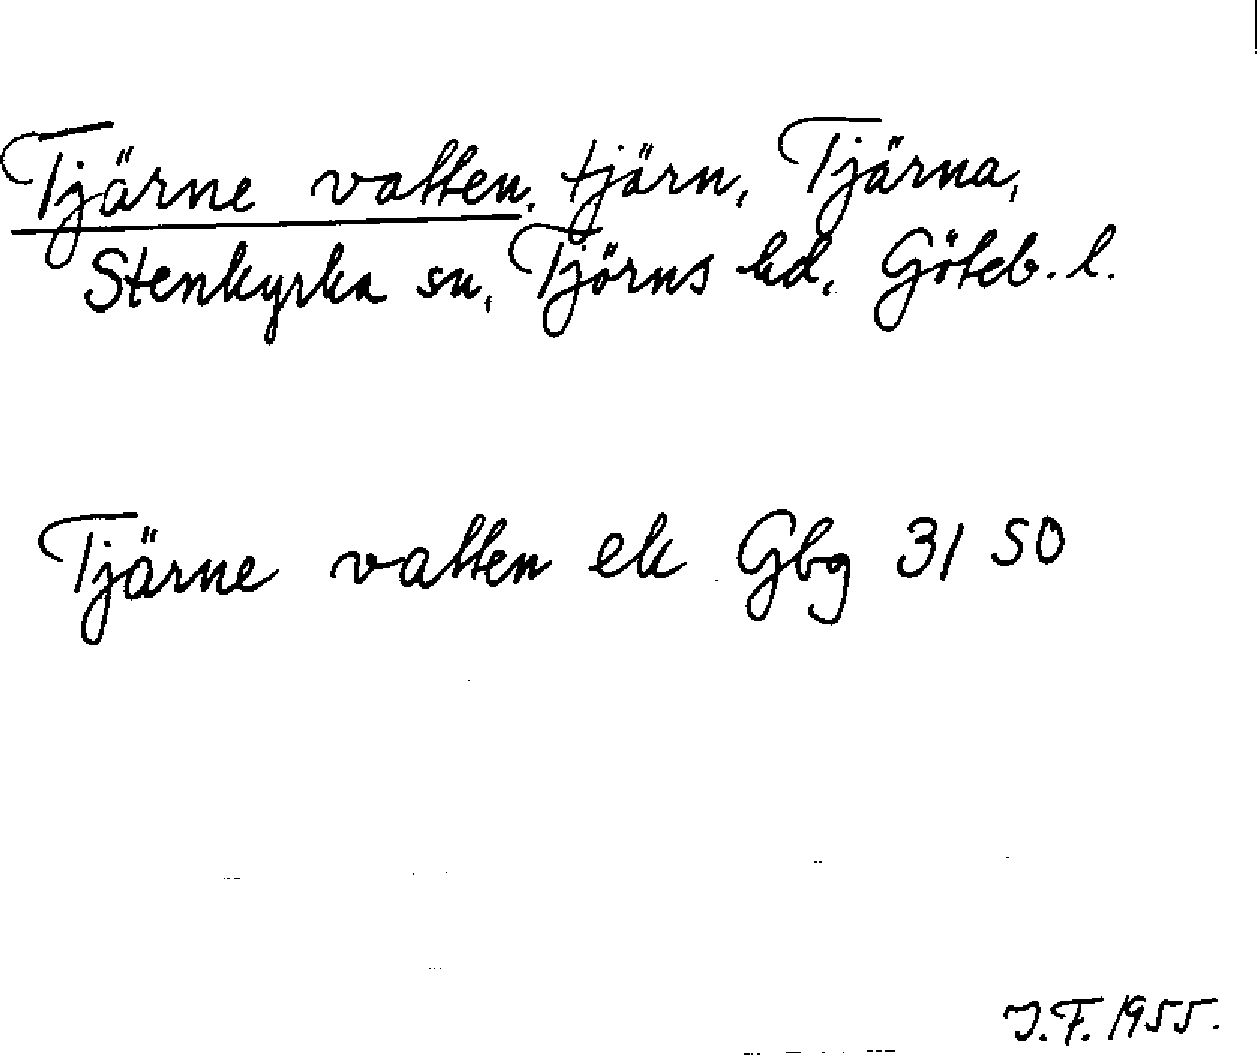 Tjärne vatten, tjärn, Tjärna,
Stenkyrka sn, Tjörns hd, Göteb. l.
Tjärne vatten ek Gbg 31 SO
J.F. 1955.